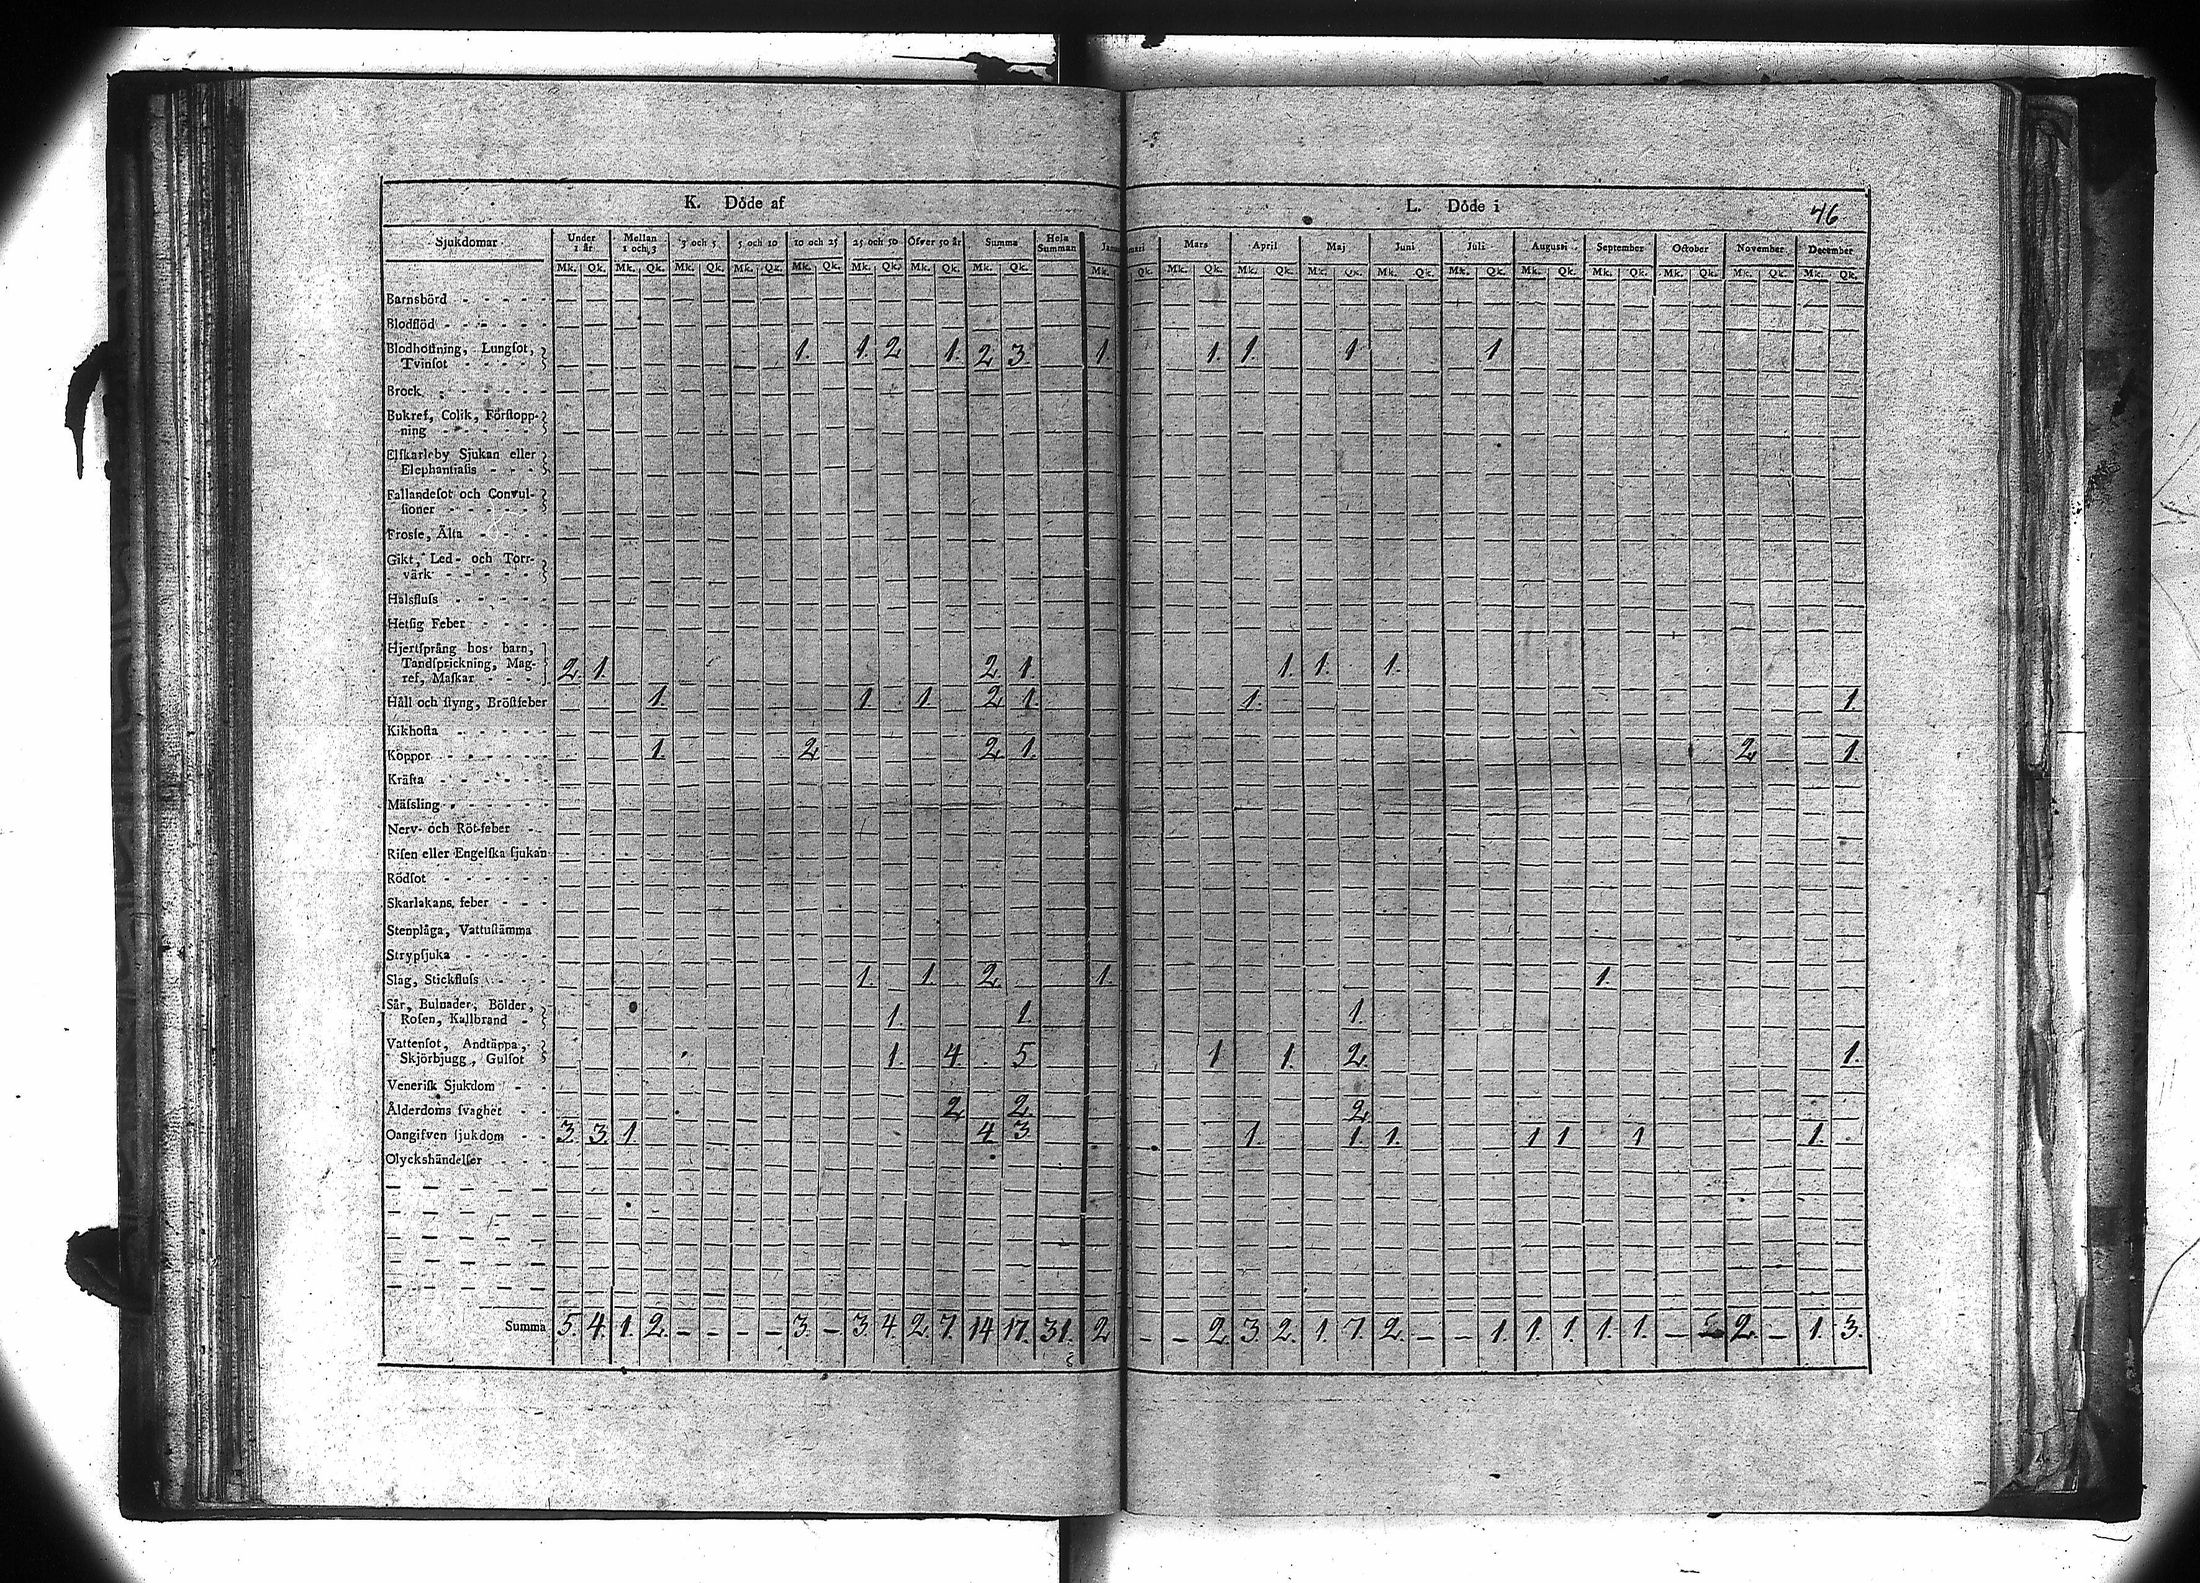 K. Döde af
L. Döde i
46
Sjukdomar
Under 1 år. Mellan 1 och 3 3 och 5 5 och 10 10 och 25 25 och 50 Öfver 50 år Summa Hela Summan Mars April Maj Juni Juli Augusti September October November December
Mk. Qk. Mk. Qk. Mk. Qk. Mk. Qk. Mk. Qk. Mk. Qk. Mk. Qk. Mk. Qk. Mk. Qk. Mk. Qk. Mk. Qk. Mk. Qk. Mk. Qk. Mk. Qk. Mk. Qk. Mk. Qk. Mk. Qk. Mk. Qk. Mk. Qk.
Barnsbörd
Blodflöd
Blodhoſtning, Lungſot,
Tvinſot 1. 1. 2 1. 2 3 1 1. 1 1 1
Brock
Bukref, Colik, Förſtopp-
ning
Elſkarleby Sjukan eller
Elephantiaſis
Fallandeſot och Convul-
ſioner
Frosſe, Älta
Gikt, Led- och Torr-
värk
Halsfluſs
Hetſig Feber
Hjertſprång hos barn,
Tandſprickning, Mag-
ref, Maſkar 2. 1. 2. 1 1. 1. 1.
Håll och ſtyng, Bröſtfeber 1. 1. 1. 2 1. 1. 1.
Kikhoſta
Koppor 1. 2 2 1. 2 1.
Kräfta
Mäſsling
Nerv- och Röt-feber
Riſen eller Engelſka ſjukan
Rödſot
Skarlakans feber
Stenplåga, Vattuſtämma
Strypſjuka
Slag, Stickfluſs 1. 1. 2 1. 1.
Sår, Bulnader, Bölder,
Roſen, Kallbrand 1. 1. 1.
Vattenſot, Andtäppa,
Skjörbjugg, Gulſot 1. 4. 5 1 1. 2. 1.
Veneriſk Sjukdom
Ålderdoms ſvaghet 2 2. 2
Oangifven ſjukdom 3. 3. 1. 4 3. 1. 1. 1. 1 1 1 1.
Olyckshändelſer
Summa 5. 4. 1. 2. - - - - 3. - 3. 4. 2. 7. 14 17. 31. 2 - - 2. 3. 2. 1. 7. 2. - - 1. 1. 1. 1. 1. - 2. - 1. 3.